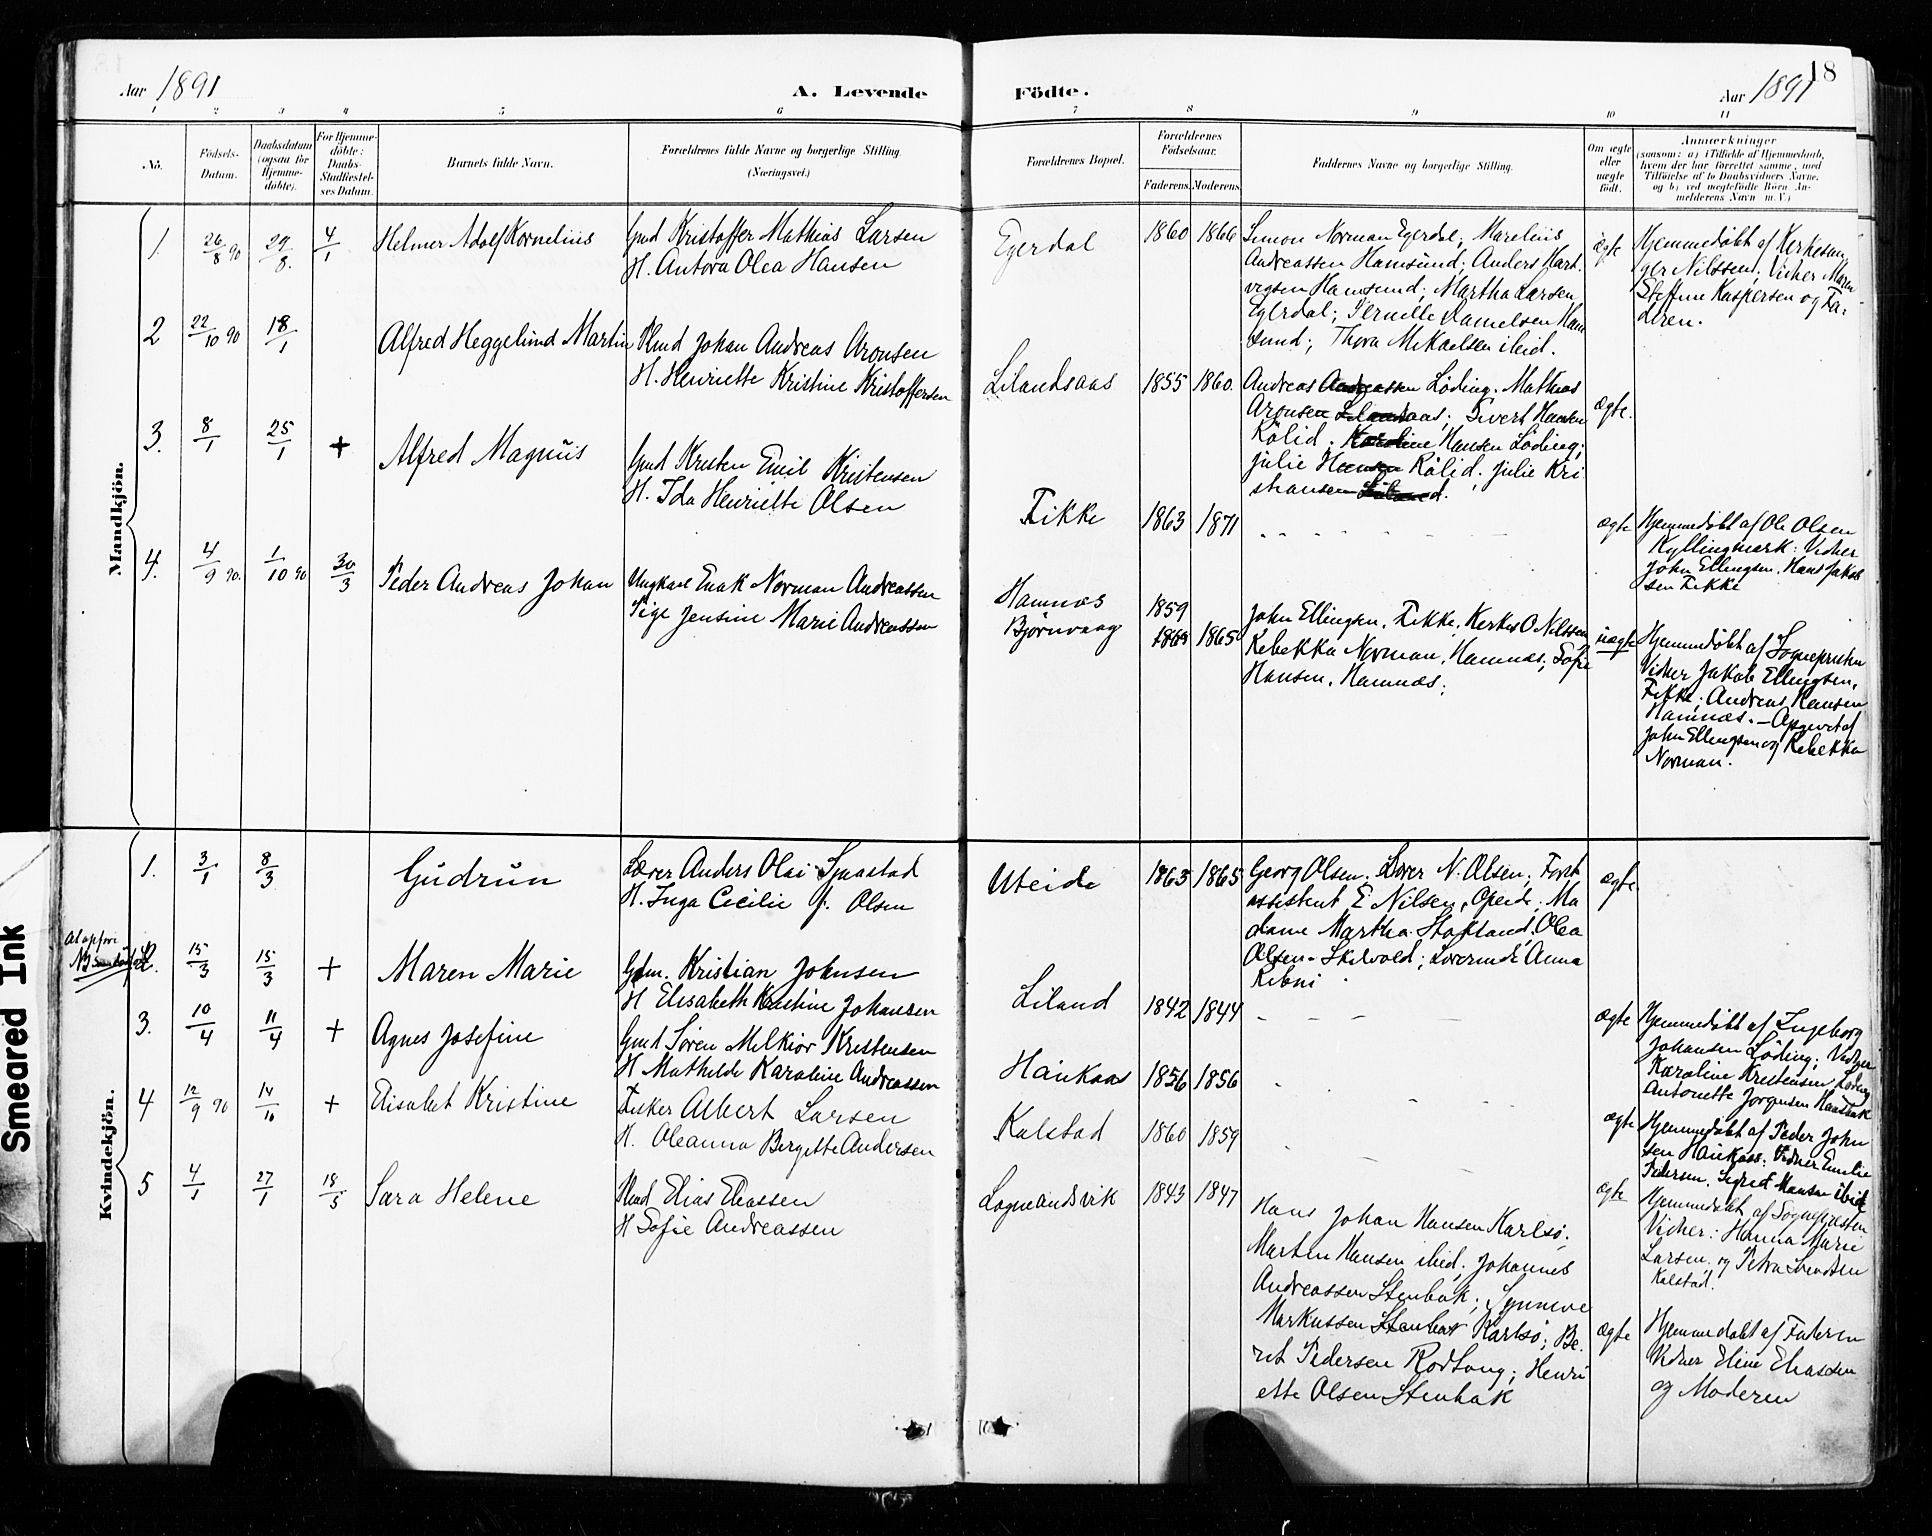 Aar 1891
A. Levende
Födte.
Aar 1891
18
1
2
3
4
5
6
7
8
9
10
11
No.
Födsels-
Datum.
Daabsdatum
(ogsaa for
Hjemme-
döbte).
For Hjemme-
döbte:
Daabs-
Stadfæstel-
ses Datum.
Barnets fulde Navn.
Forældrenes fulde Navne og borgerlige Stilling.
(Næringsvei.)
Forældrenes Bopæl.
Forældrenes
Födselsaar.
Faderens.
Moderens.
Faddernes Navne og borgerlige Stilling.
Om ægte
eller
uægte
födt.
Anmærkninger
(saasom: a) i Tilfælde af Hjemmedaab,
hvem der har forrettet samme, med
Tilföielse af to Daabsvidners Navne,
og b) ved uægtefödte Børn An-
melderens Navn m. V.)
Mandkjön.
1.
26/8 90
29/8.
4/1
Helmer Adolf Kornelius
Gmd Kristoffer Mathias Larsen
H. Antora Olea Hansen
Egerdal
1860
1866
Simon Norman Egerdal; Marelius
Andreassen Hamsund; Anders Hart
vigsen Hamsund; Martha Larsen
Egerdal; Pernille Danielsen Ham
sund; Thora Mikaelsen ibid.
ægte
Hjemmedøbt af Kirkesan,
ger Nilssen; Vidner Maren
Steffine Kaspersen og Fa,
deren.
2
22/10 90
18/1
Alfred Heggelund Martin
Plmd Johan Andreas Aronsen
H. Henriette Kristine Kristoffersen
Lilandsaas
1855
1860.
Andreas Andreassen Löding. Mathias
Aronsen Lilandsaas; Sivert Hansen
Rölid. Karoline Hansen Löding;
Julie Hansen Rölid; Julie Kri
stiansen Liland.
ægte.
3.
8/1
25/1
+
Alfred Magnus
Gmd Kristen Emil Kristensen
H. Ida Henriette Olsen
Fikke
1863
1871
ægte
Hjemmedöbt af Ole Olsen
Kyllingmark: Vidner
John Ellingsen, Hans Jakob
sen Fikke
4.
4/9 90.
1/10 90
30/3
Peder Andreas Johan
Ungkarl Enok Norman Andreassen
Pige Jensine Marie Andreassen
Hamnæs
Bjørnvaag
1859
1865
John Ellingsen, Fikke, Kirkes O Nilssen
Rebekka Norman, Hamnæs; Sofie
Hansen, Hamnæs;
uægte
Hjemmedöbt af Sognepresten
Vidner Jakob Ellingsen,
Fikke; Andreas Hansen
Hamnæs. — Opgivet af
John Ellingsen og Rebekka
Norman.
Kvindekjön.
1.
3/1
8/3
Gudrun
Lærer Anders Olai Sjaastad
H. Inga Cecilie f. Olsen
Uteide
1863
1865
Georg Olsen. Lærer N. Olsen; Forst
assistent E Nilsen, Opeid; Ma
dame Martha Stofland; Olea
Olsen Skilvold; Lærerinde Anna
Ribni
ægte
2.
15/3
15/3
+
Maren Marie
Gdm. Kristian Johnsen
H Elisabeth Kristine Johansen
Liland
1842
1844
ægte
Hjemmedöbt af Ingeborg
Johansen Löding; Vidner
Karoline Kristensen Löding
Antonette Jorgensen
3.
10/4
11/4
+
Agnes Josefine
Gmd Søren Melkior Kristensen
H Mathilde Karoline Andreassen
Haukaas
1856
1856
ægte
Hjemmedöbt af Peder John
sen Haukaas. Vidner Emilie
Pedersen, Sigrid Hansen ibid
4
12/9 90
14/10
+
Elisabet Kristine
Fisker Albert Larsen
H. Oleanna Bergitte Andersen
Kalstad
1860
1859
ægte
Hjemmedöbt af Sognepresten
Vidner: Hanna Marie
Larsen, og Petra Svendsen
Kalstad.
5
4/1
27/1
18/5
Sara Helene
Plmd Elias Eliassen
H Sofie Andreassen
Lagmandsvik
1843
1847
Hans Johan Hansen Karlsö;
Martin Hansen ibid; Johannes
Andreassen Stenbak; Synneve
Markussen Stenbak Karlsö; Be.
rit Pedersen Rodtang; Henri
ette Olsen Stenbak
ægte
Hjemmedöbt af Faderen
Vidner Eline Eliassen
og Moderen
Smeared Ink